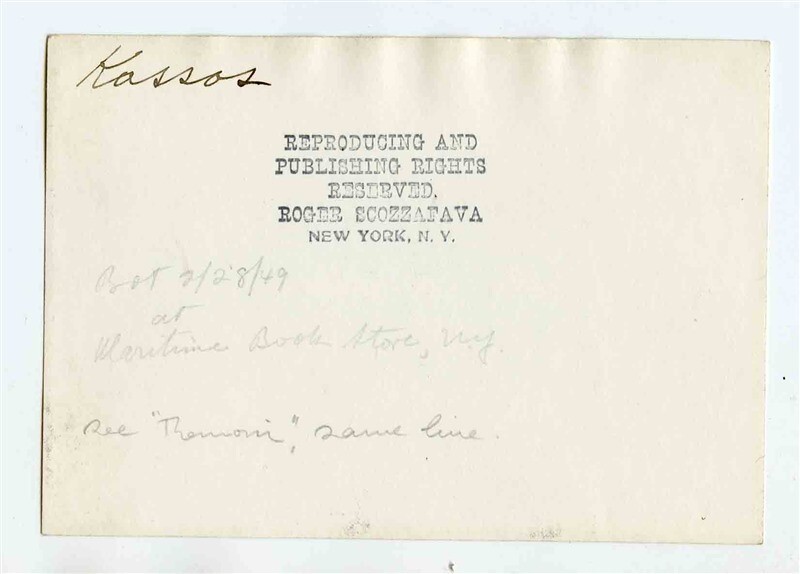 Kassos
REPRODUCING AND
PUBLISHING RIGHTS
RESERVED.
ROGER SCOZZAFAVA
NEW YORK, N. Y.
Bot 2/28/49
at
Maritime Book Store, N.Y.
see "Themoni", same line.